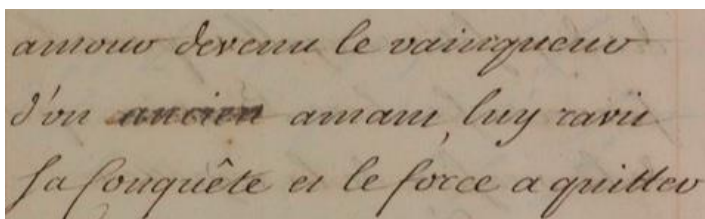 amour devenu le vainqueur
d'un ancien amant, luy ravit
sa Conquête et le force a quitter